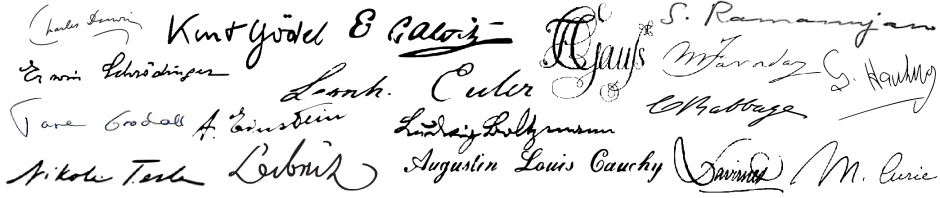 Charles Darwin
Kurt Gödel
E Galois
CF Gauss
S. Ramanujan
Erwin Schrödinger
Leonh. Euler
M Faraday
S. Hawking
Jane Goodall
A. Einstein
Ludwig Boltzmann
C Babbage
Nikola Tesla
Leibniz
Augustin Louis Cauchy
M. Curie